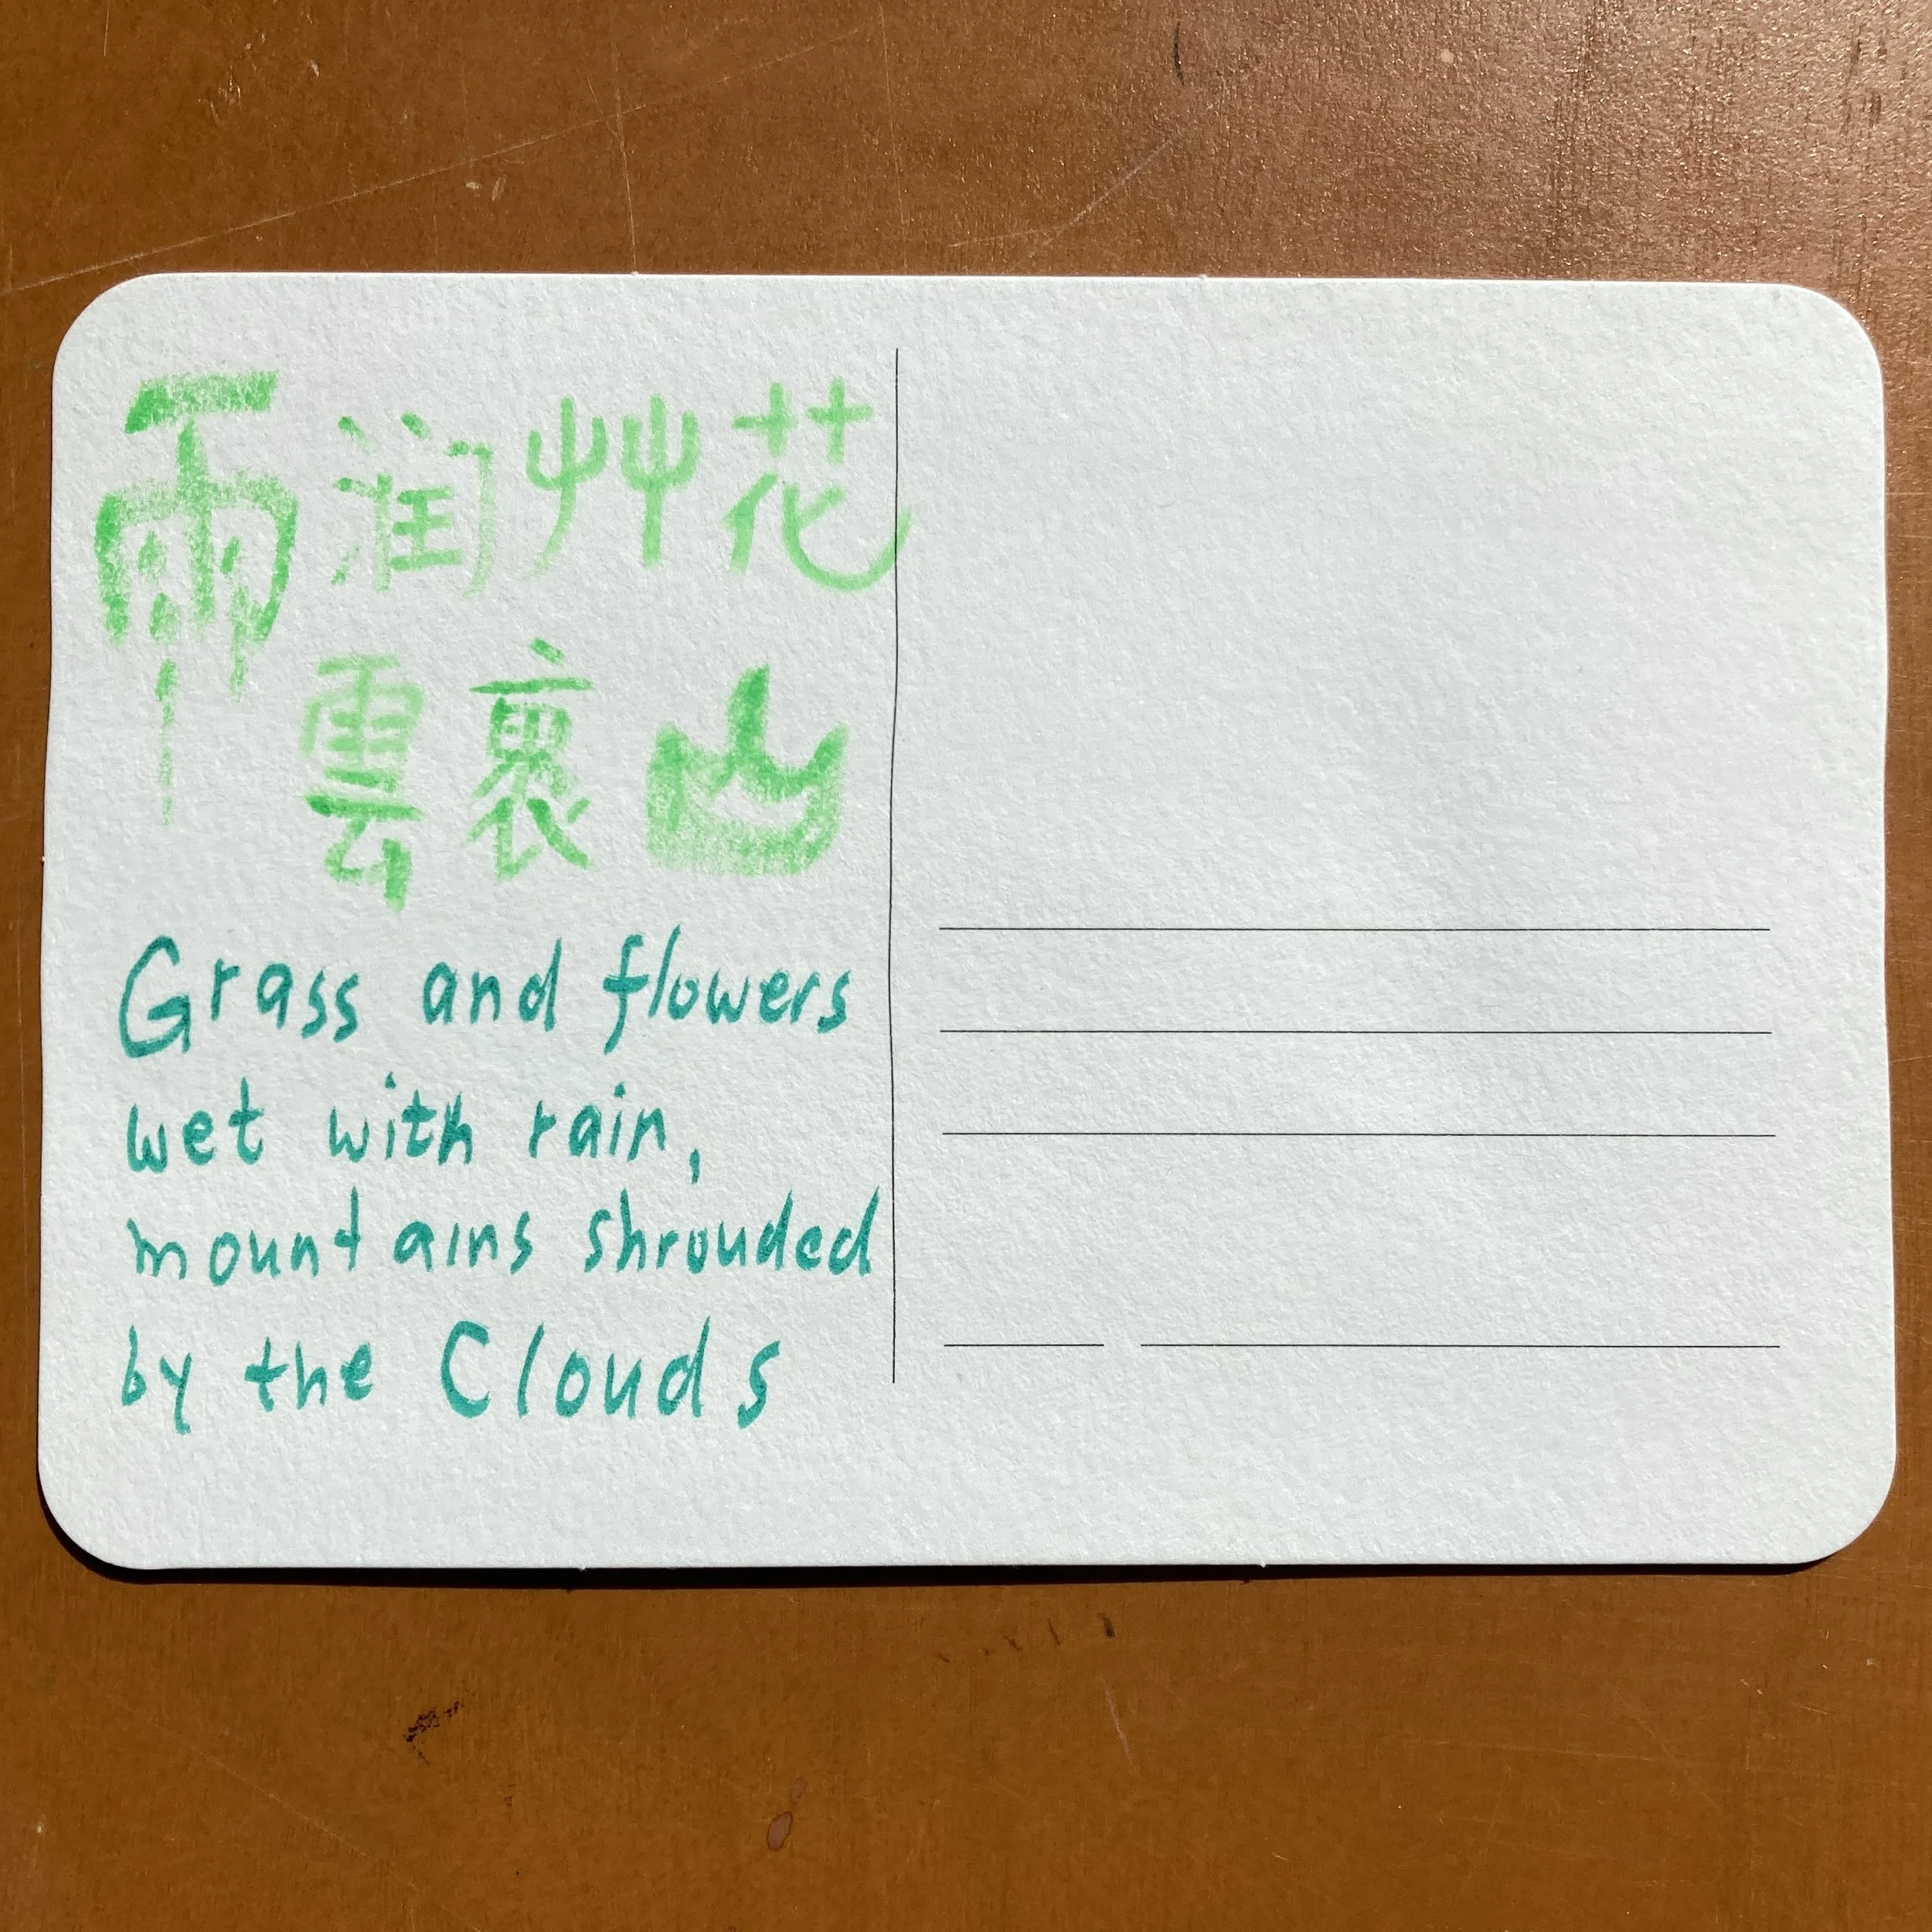 雨润艸花
雲裹山
Grass and flowers
wet with rain,
mountains shrouded
by the Clouds